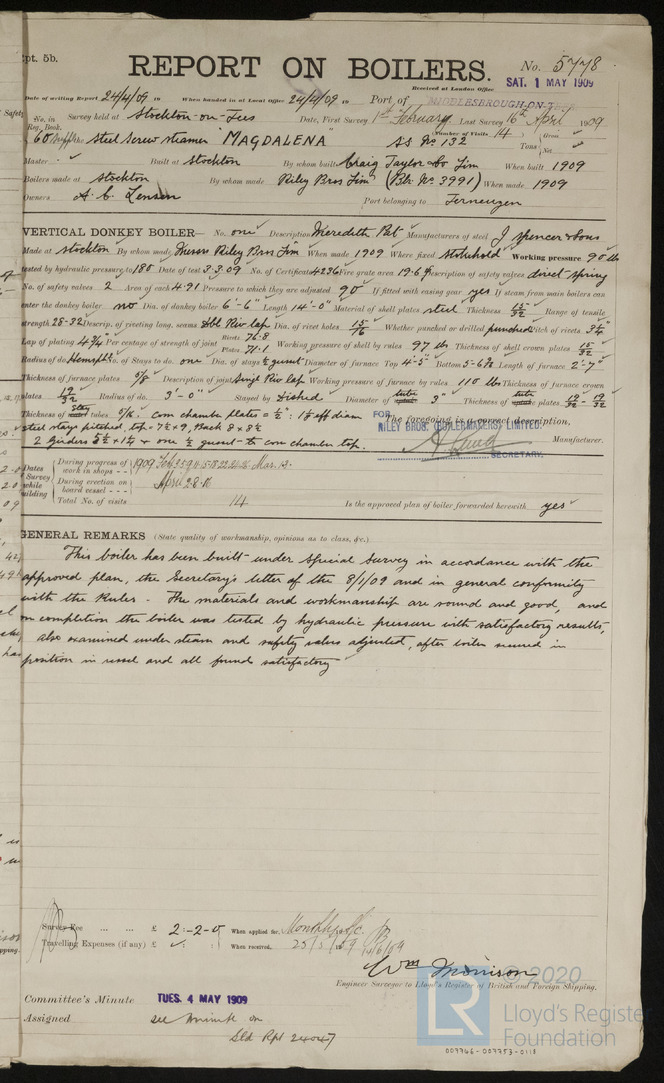 Rpt. 5b.
REPORT ON BOILERS.
No. 5778
Received at London Office SAT. 1 MAY 1909
Date of writing Report 24/4/09 19 When handed in at Local Office 24/4/09 19 Port of MIDDLESBROUGH-ON-TEES
No. in Survey held at Stockton-on-Tees Date, First Survey 1st February Last Survey 16th April 1909
Reg. Book.
Number of Visits 14
60 on the Steel Screw Steamer "MAGDALENA" SS No 132 Tons Gross Net
Master Built at Stockton By whom built Craig Taylor & Co Lim When built 1909
Boilers made at Stockton By whom made Riley Bros Lim (Blr. No 3991) When made 1909
Owners A. C. Lensen Port belonging to Terneuzen
VERTICAL DONKEY BOILER— No. one Description Meredith Pat Manufacturers of steel J Spencer & Sons
Made at Stockton By whom made Messrs Riley Bros Lim When made 1909 Where fixed Stokehold Working pressure 90 lb
tested by hydraulic pressure to 180 Date of test 3.3.09 No. of Certificate 4236 Fire grate area 19.6 Description of safety valves direct spring
No. of safety valves 2 Area of each 4.91 Pressure to which they are adjusted 90 If fitted with easing gear yes If steam from main boilers can
enter the donkey boiler no Dia. of donkey boiler 6'-6" Length 14'-0" Material of shell plates steel Thickness 15/32 Range of tensile
strength 28-32 Descrip. of riveting long. seams Dbl Riv lap Dia. of rivet holes 15/16 Whether punched or drilled punched Pitch of rivets 3 1/4
Lap of plating 4 3/4 Per centage of strength of joint Rivets 76.8 Plates 71.1 Working pressure of shell by rules 97 lbs Thickness of shell crown plates 15/32
Radius of do. Hemisph'l No. of Stays to do. one Dia. of stays 1/2 gusset Diameter of furnace Top 4'-5" Bottom 5-6 3/4 Length of furnace 2'-7"
Thickness of furnace plates 5/8 Description of joint Singl Riv lap Working pressure of furnace by rules 110 lbs Thickness of furnace crown
plates 19/32 Radius of do. 3'-0" Stayed by Dished Diameter of tube 3" Thickness of tube plates 19/32 - 19/32
Thickness of Stay tubes 5/16. com chamber plates = 1/2": 1 1/8 eff diam
steel stays pitched, top = 7 1/2 x 9, Back 8 x 8 1/2
2 Girders 5 1/2 x 1 1/4 & one 1/2 gusset to com chamber top.
The foregoing is a correct description,
FOR RILEY BROS. (BOILERMAKERS) LIMITED. Manufacturer.
SECRETARY.
Dates of Survey while building
During progress of work in shops - - 1909 Feb 3.5.9.11.15.18.22.24.26 Mar. 12.
During erection on board vessel - - - April 2.8.16
Total No. of visits 14 Is the approved plan of boiler forwarded herewith yes
GENERAL REMARKS (State quality of workmanship, opinions as to class, &c.)
This boiler has been built under Special Survey in accordance with the
approved plan, the Secretary's letter of the 8/1/09 and in general conformity
with the Rules. The materials and workmanship are sound and good, and
on completion the boiler was tested by hydraulic pressure with satisfactory results,
also examined under steam and safety valves adjusted, after boiler secured in
position in vessel and all found satisfactory
Survey Fee ... ... £ 2:-2-0 When applied for, Monthly A/c.
Travelling Expenses (if any) £ When received, 25/5/09
Wm Morrison
Engineer Surveyor to Lloyd's Register of British and Foreign Shipping.
Committee's Minute TUES. 4 MAY 1909
Assigned see minute on
Sld Rpt 24047
© 2020
LR
Lloyd's Register
Foundation
007746-007753-0118